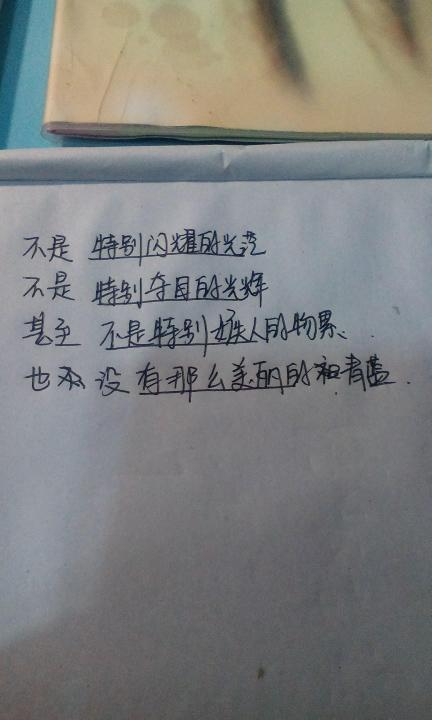 不是 特别闪耀的光芒
不是 特别夺目的光辉
甚至 不是特别 人的物累
也 没有那么美丽的 青蓝.